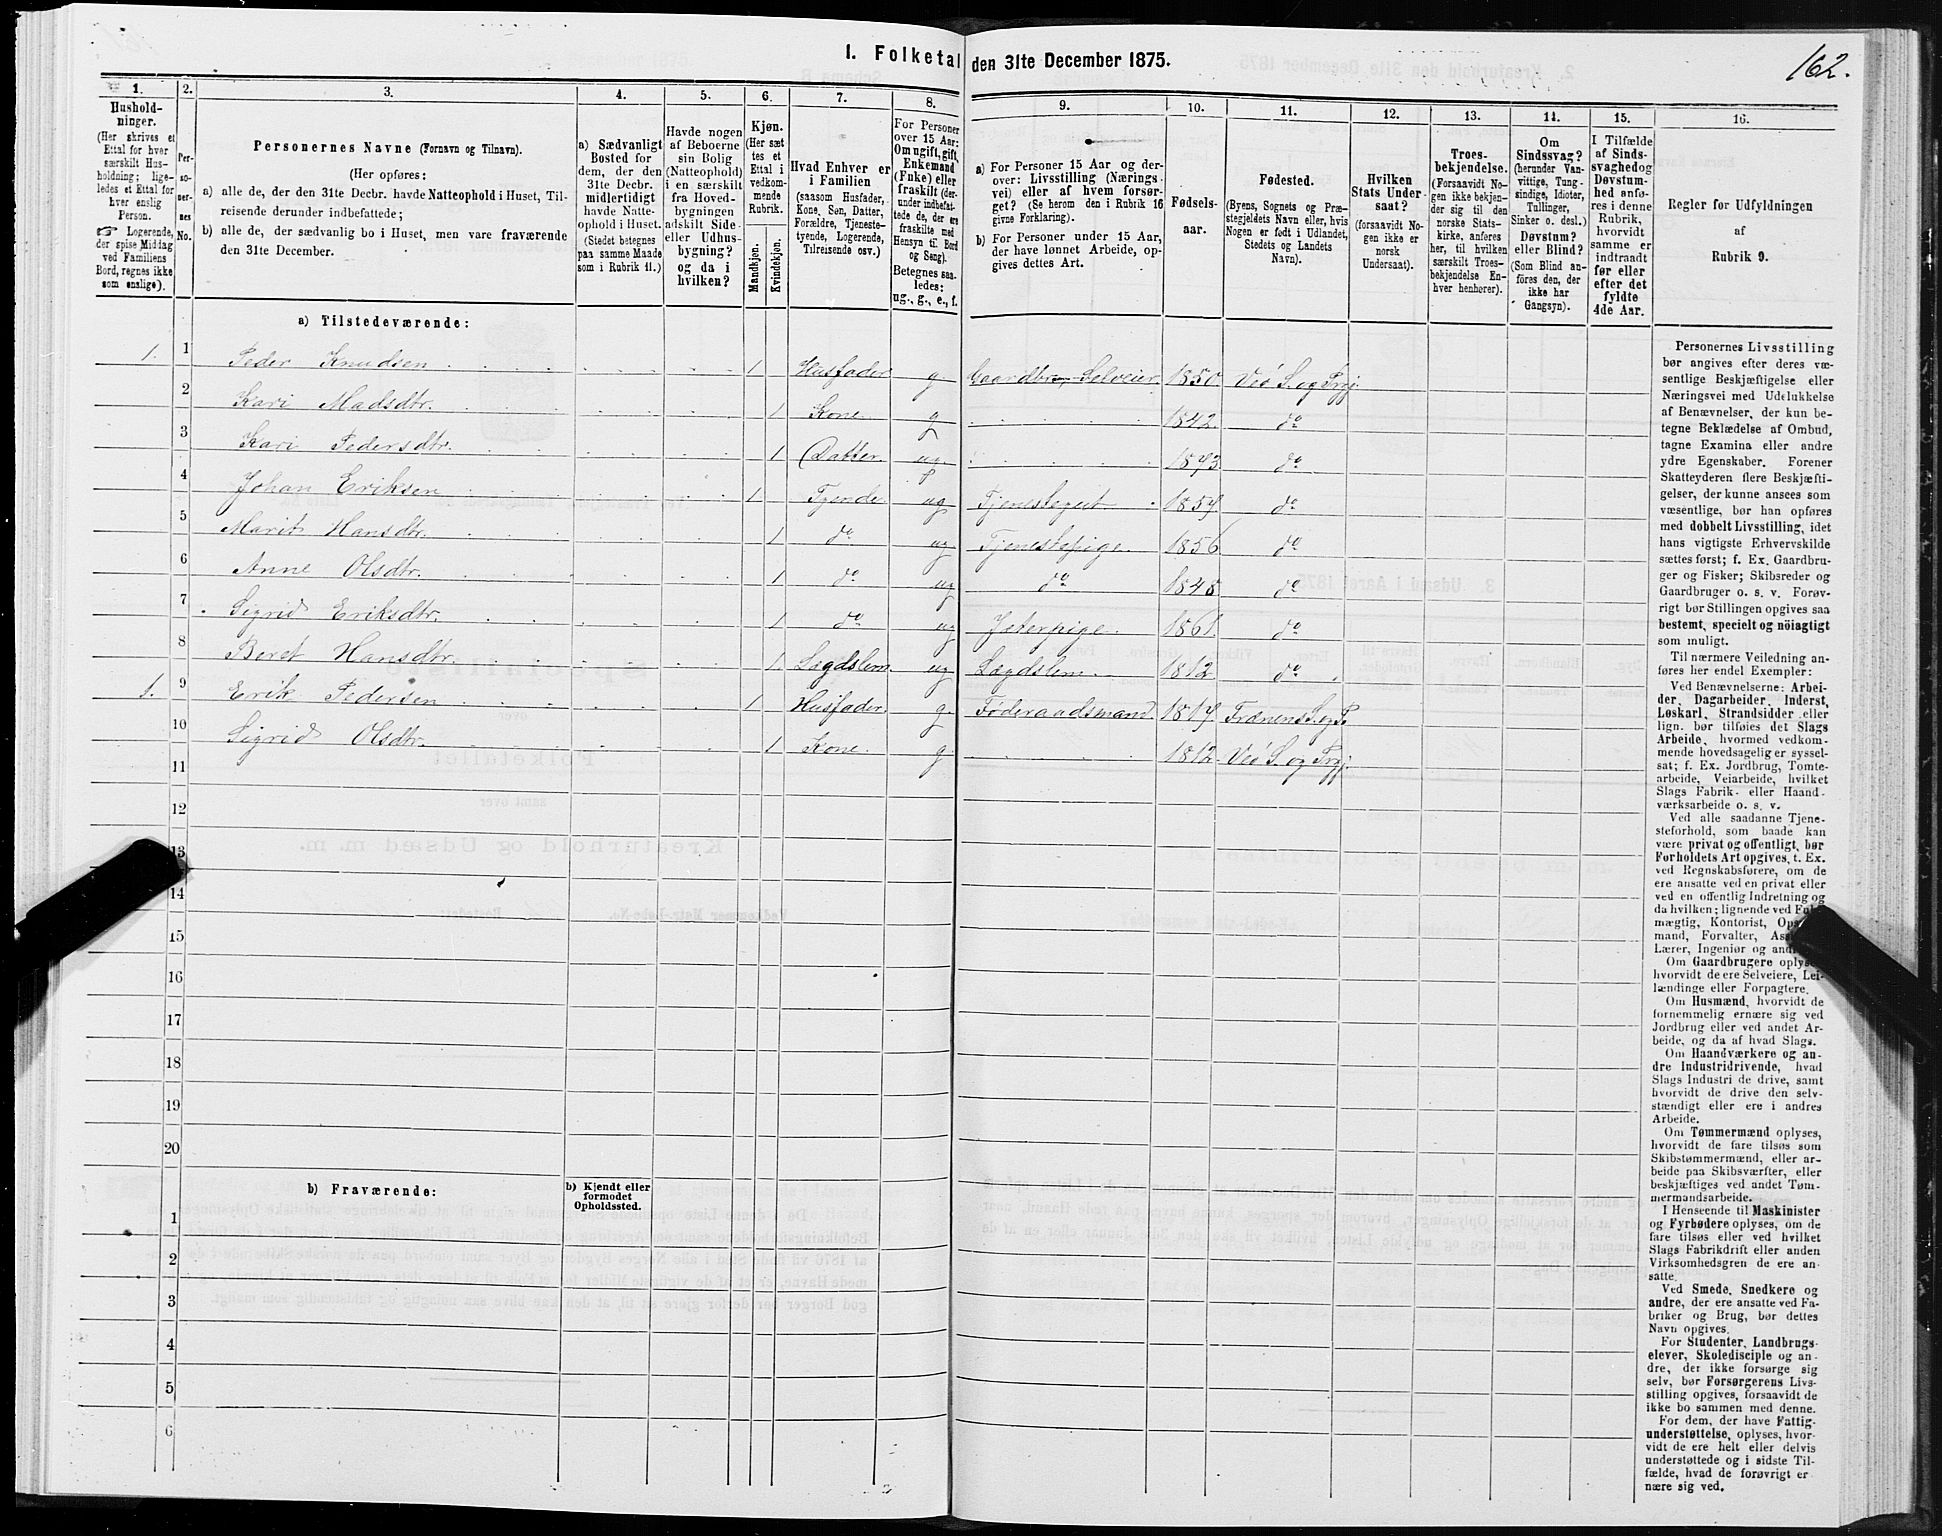 I. Folketal den 31te December 1875.
162.
1. 2. 3. 4. 5. 6. 7. 8. 9. 10. 11. 12. 13. 14. 15. 16.
Hushold-
ninger.
(Her skrives et
Ettal for hver
særskilt Hus-
holdning; lige-
ledes et Ettal for
hver enslig
Person.
Logerende,
der spise Middag
ved Familiens
Bord, regnes ikke
som enslige).
Per-
so-
ner-
nes
No.
Personernes Navne (Fornavn og Tilnavn).
(Her opføres:
a) alle de, der den 31te Decbr. havde Natteophold i Huset, Til-
reisende derunder indbefattede;
b) alle de, der sædvanlig bo i Huset, men vare fraværende
den 31te December.
a) Sædvanligt
Bosted for
dem, der den
31te Decbr.
midlertidigt
havde Natte-
ophold i Huset.
(Stedet betegnes
paa samme Maade
som i Rubrik 11.)
Havde nogen
af Beboerne
sin Bolig
(Natteophold)
i en særskilt
fra Hoved-
bygningen
adskilt Side-
eller Udhus-
bygning?
og da i
hvilken?
Kjøn.
(Her sæt
tes et
Ettal i
vedkom-
mende
Rubrik.
Mandkjøn.
Kvindekjøn.
Hvad Enhver er
i Familien
(saasom Husfader,
Kone, Søn, Datter,
Forældre, Tjeneste-
tyende, Logerende,
Tilreisende osv.)
For Personer
over 15 Aar:
Om ugift, gift,
Enkemand
(Enke) eller
fraskilt (der-
under indbefat-
tede de, der ere
fraskilte med
Hensyn til Bord
og Seng).
Betegnes saa-
ledes:
ug., g., e., f.
a) For Personer 15 Aar og der-
over: Livsstilling (Nærings-
vei) eller af hvem forsør-
get? (Se herom den i Rubrik 16
givne Forklaring).
b) For Personer under 15 Aar,
der have lønnet Arbeide, op-
gives dettes Art.
Fødsels-
aar.
Fødested.
(Byens, Sognets og Præ-
stegjeldets Navn eller, hvis
Nogen er født i Udlandet,
Stedets og Landets
Navn).
Hvilken
Stats Under-
saat?
(forsaavidt No-
gen ikke er
norsk
Undersaat).
Troes-
bekjendelse.
(Forsaavidt No-
gen ikke bekjen-
der sig til den
norske Stats-
kirke, anføres
her, til hvilken
særskilt Troes-
bekjendelse En-
hver henhører).
Om
Sindssvag?
(herunder Van-
vittige, Tung-
sindige, Idioter,
Tullinger,
Sinker o. desl.)
Døvstum?
eller Blind?
(Som Blind an-
føres den, der
ikke har
Gangsyn).
I Tilfælde
af Sinds-
svaghed og
Døvstum-
hed anfø-
res i denne
Rubrik,
hvorvidt
samme er
indtraadt
før eller
efter det
fyldte
4de Aar.
Regler for Udfyldningen
af
Rubrik 9.
a) Tilstedeværende:
1. 1 Peder Knudsen 1 Husfader g. Gaardbr., Selveier. 1850. Veø S. og Prgj.
2 Kari Madsdtr. 1 Kone g 1842. do
3 Kari Pedersdtr. 1 Datter. ug. 1873. do
4 Johan Eriksen 1 Tyende ug Tjenestegut 1857 do
5 Marit Hansdtr. 1 do ug Tjenestepige. 1856 do
6 Anne Olsdtr. 1 do ug do 1848 do
7 Sigrid Eriksdtr. 1 do ug Jeterpige. 1861. do
8 Beret Hansdtr. 1 Lægdslem. ug Lægdslem. 1812 do
1. 9 Erik Pedersen 1 Husfader g. Føderaadsmand. 1817. Frænens S. og P.
10 Sigrid Olsdtr. 1 Kone. g. 1812. Veø S. og Prgj.
11
12
13
14
15
16
17
18
19
20
b) Fraværende:
b) Kjendt eller
formodet
Opholdssted.
1
2
3
4
5
6
Personernes Livsstilling
bør angives efter deres væ-
sentlige Beskjæftigelse eller
Næringsvei med Udelukkelse
af Benævnelser, der kun be-
tegne Beklædelse af Ombud,
tagne Examina eller andre
ydre Egenskaber. Forener
Skatteyderen flere Beskjæfti-
gelser, der kunne ansees som
væsentlige, bør han opføres
med dobbelt Livsstilling, idet
hans vigtigste Erhvervskilde
sættes først; f. Ex. Gaardbru-
ger og Fisker; Skibsreder og
Gaardbruger o. s. v. Forøv-
rigt bør Stillingen opgives saa
bestemt, specielt og nöiagtigt
som muligt.
Til nærmere Veiledning an-
føres her endel Exempler:
Ved Benævnelserne: Arbei-
der, Dagarbeider, Inderst,
Løskarl, Strandsidder eller
lign. bør tilføies det Slags
Arbeide, hvormed vedkom-
mende hovedsagelig er syssel-
sat; f. Ex. Jordbrug, Tomte-
arbeide, Veiarbeide, hvilket
Slags Fabrik- eller Haand-
værksarbeide o. s. v.
Ved alle saadanne Tjene-
steforhold, som baade kan
være privat og offentligt, bør
Forholdets Art opgives, t. Ex.
ved Regnskabsførere, om de
ere ansatte ved en privat eller
ved en offentlig Indretning og
da hvilken; lignende ved
mægtig, Kontorist,
mand, Forvalter,
Lærer, Ingeniør og
Om Gaardbrugere
hvorvidt de ere Selveiere, Lei-
lændinge eller Forpagtere.
Om Husmænd, hvorvidt de
fornemmelig ernære sig ved
Jordbrug eller ved andet Ar-
beide, og da af hvad Slags.
Om Haandværkere og an-
dre Industridrivende, hvad
Slags Industri de drive, samt
hvorvidt de drive den selv-
stændigt eller ere i andres
Arbeide.
Om Tømmermænd oplyses,
hvorvidt de fare tilsøs som
Skibstømmermænd, eller ar-
beide paa Skibsværfter, eller
beskjæftiges ved andet Tøm-
mermandsarbeide.
I Henseende til Maskinister
og Fyrbødere oplyses, om de
fare tilsøs eller ved hvilket
Slags Fabrikdrift eller anden
Virksomhedsgren de ere an-
satte.
Ved Smede, Snedkere og
andre, der ere ansatte ved Fa-
briker og Brug, bør dettes
Navn opgives.
For Studenter, Landbrugs-
elever, Skoledisciple og an-
dre, der ikke forsørge sig
selv, bør Forsørgerens Livs-
stilling opgives, forsaavidt de
ikke bo sammen med denne.
For dem, der have Fattig-
understøttelse, oplyses, hvor-
vidt de ere helt eller delvis
understøttede og i sidste Til-
fælde, hvad de forøvrigt er-
nære sig ved.